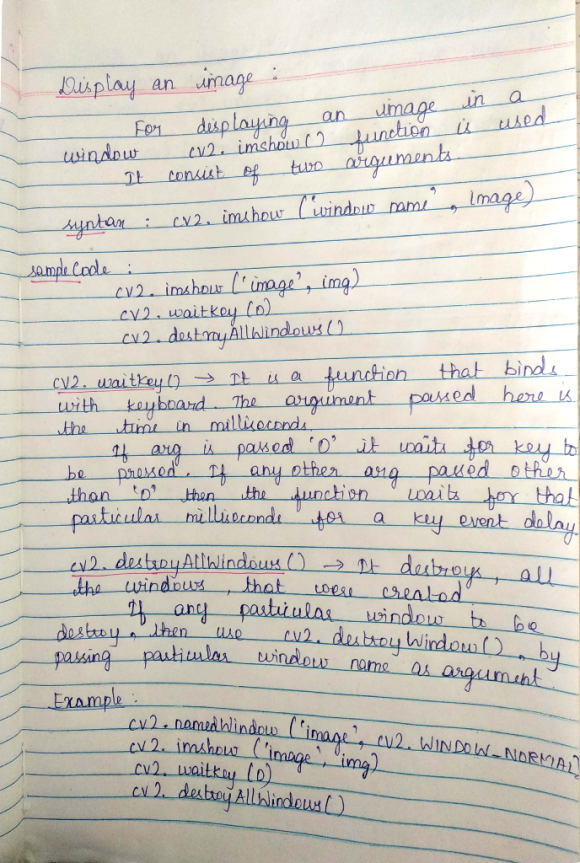 Display an image :
For displaying an image in a
window cv2. imshow() function is used
It consist of two arguments
syntax : cv2. imshow ('window name', image)
sample Code :
cv2. imshow ('image', img)
cv2. waitkey (0)
cv2. destroyAllWindows()
cv2. waitkey() → It is a function that binds
with keyboard. The argument passed here is
the time in milliseconds.
If arg is passed '0' it waits for key to
be pressed. If any other arg passed other
than '0' then the function waits for that
particular milliseconds for a key event delay.
cv2. destroyAllWindows() → It destroys, all
the windows, that were created
If any particular window to be
destroy, then use cv2. destroyWindow(), by
passing particular window name as argument.
Example :
cv2. namedWindow ('image', cv2. WINDOW_NORMAL)
cv2. imshow ('image', img)
cv2. waitkey (0)
cv2. destroyAllWindows()